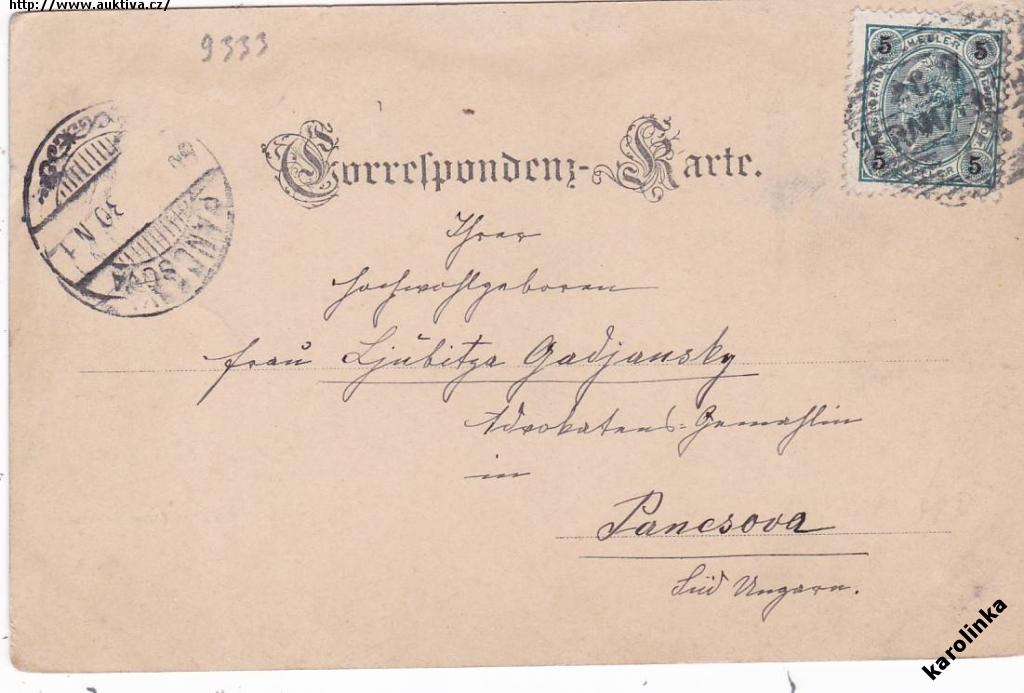 http://www.auktiva.cz/
9333
5 HELLER 5
5 HELLER 5
Correspondenz-Karte.
PANCSOVA
30 N 1
Ihrer
Hochwohlgeboren
Frau Ljubitza Gadjansky
Advokatens-Gemahlin
in
Pancsova
Süd Ungarn.
karolinka